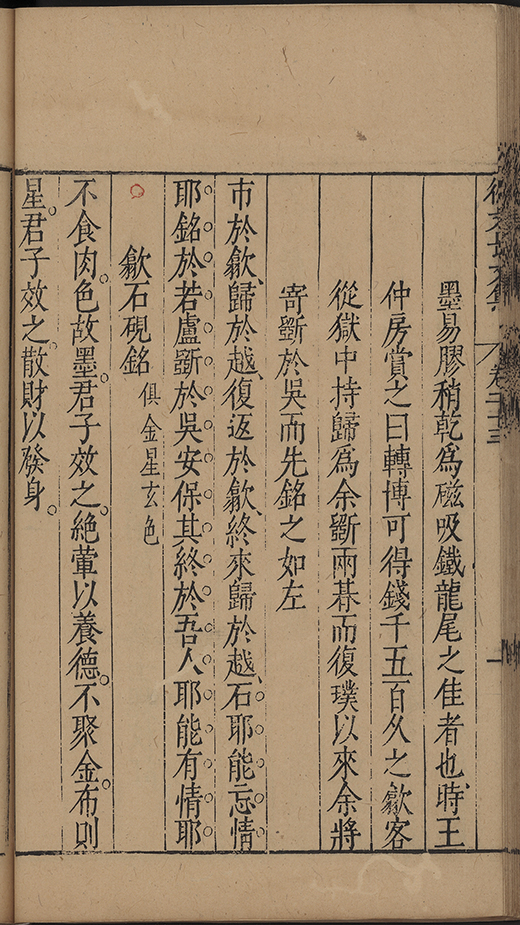 徐文長文集 卷二十三
墨易膠稍乾爲磁吸鐵龍尾之佳者也時王
仲房賞之曰轉博可得錢千五百久之歙客
從獄中持歸爲余斲兩朞而復璞以來余將
寄斵於吳而先銘之如左
市於歙歸於越復返於歙終來歸於越石耶能忘情
耶銘於若盧斵於吳安保其終於吾人耶能有情耶
歙石硯銘 俱金星玄色
不食肉。色故墨。君子效之。絶葷以養德。不聚金。布則
星。君子效之。散財以發身。